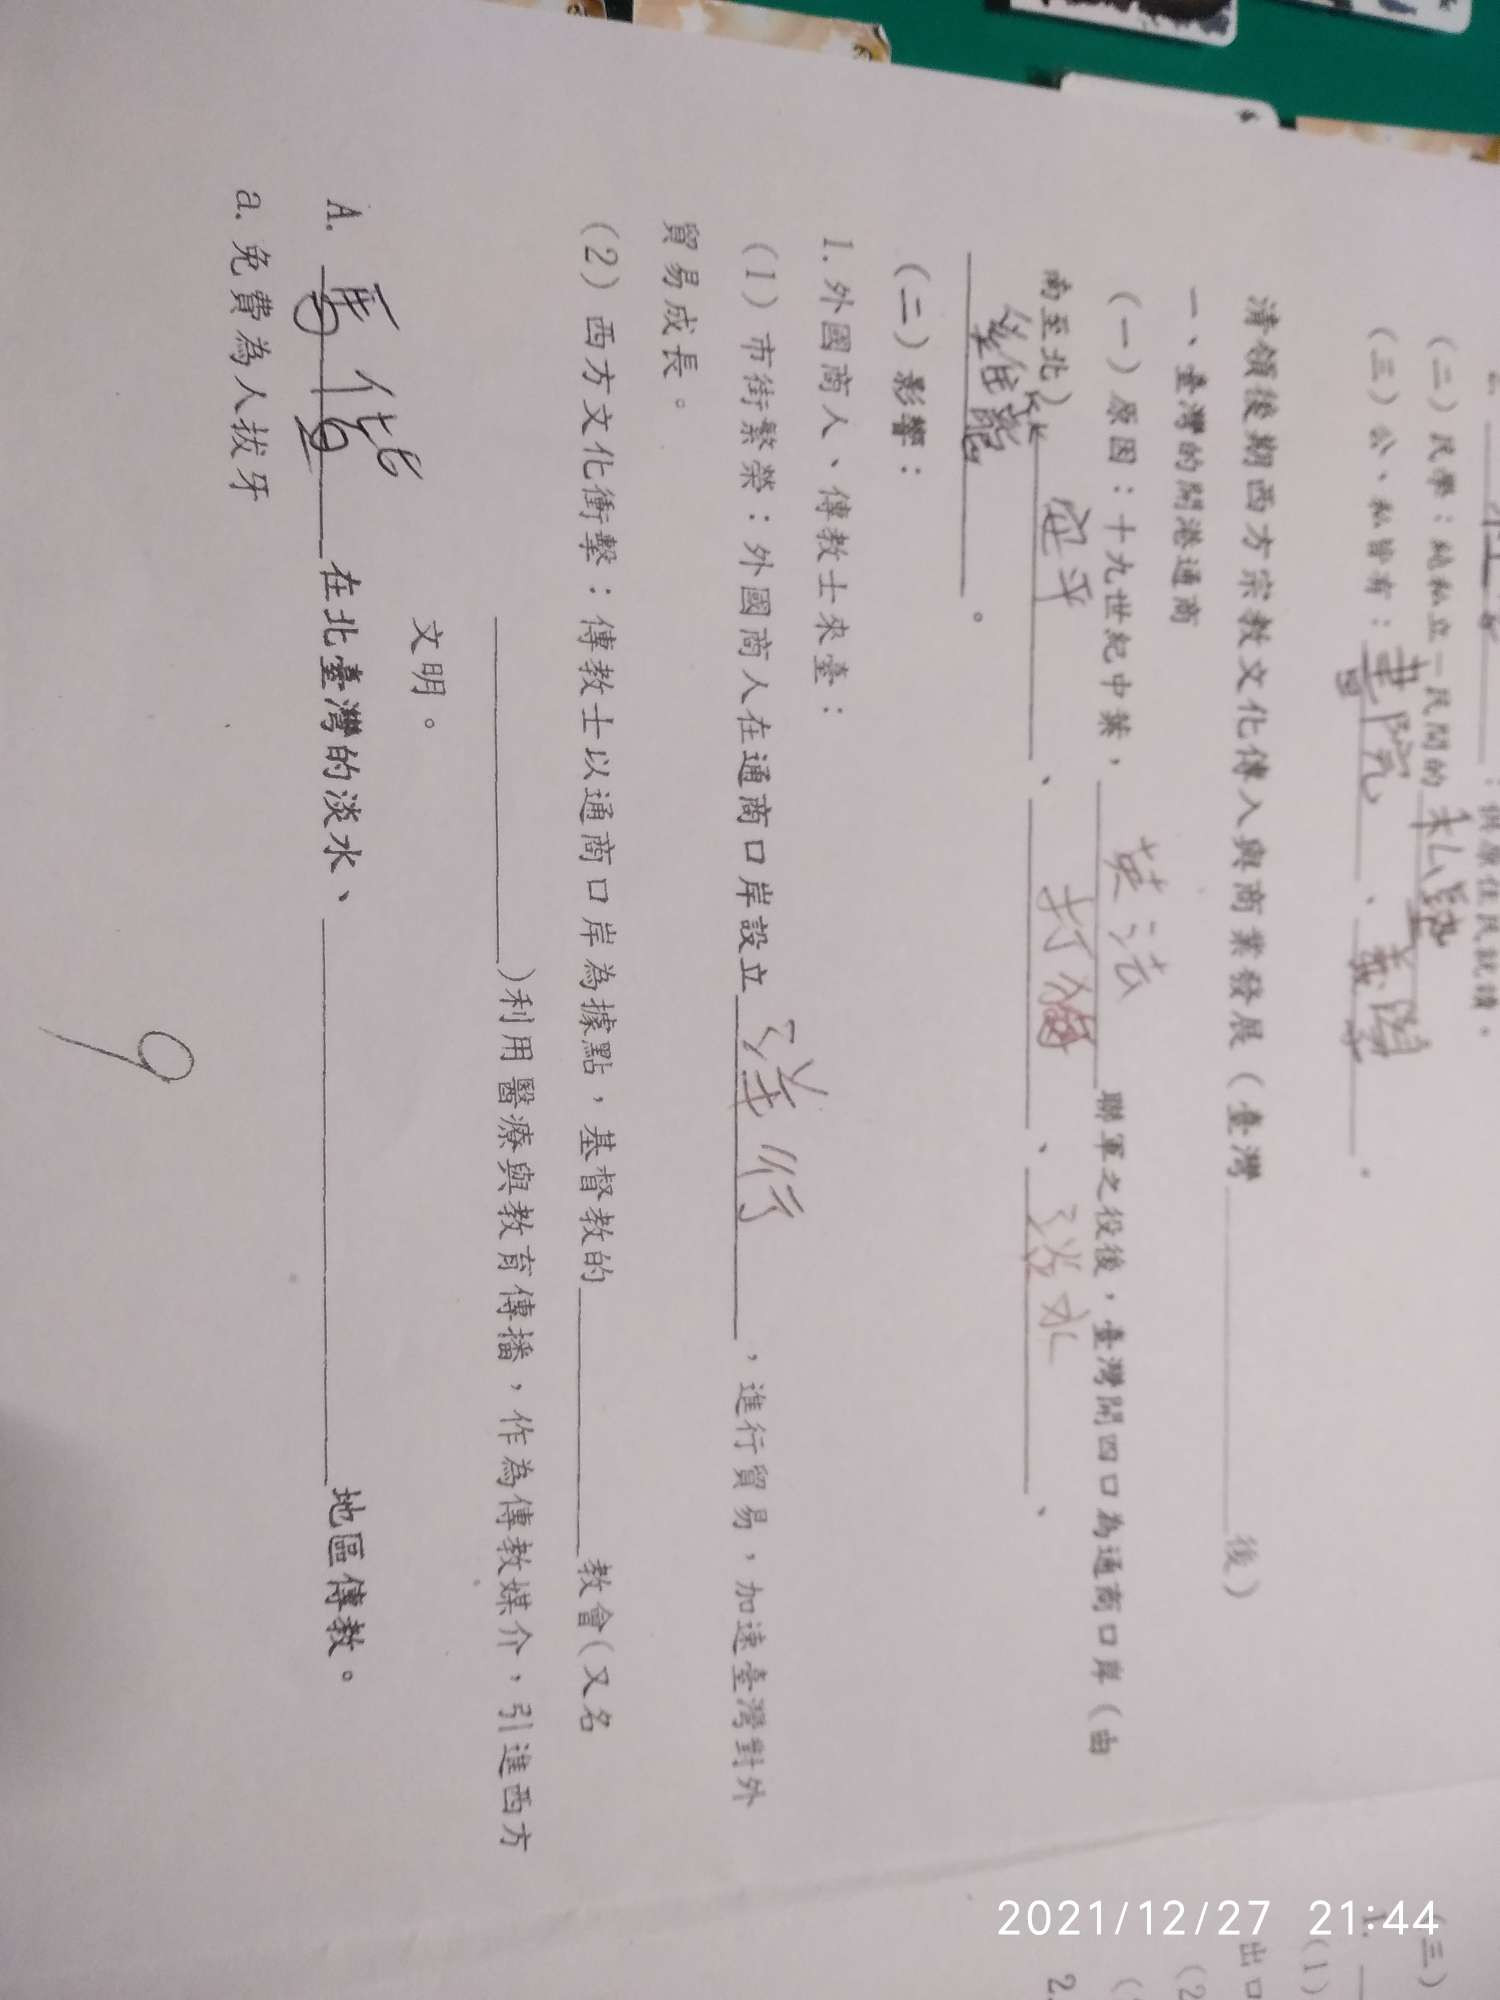 ：供原住民就讀。
(二)民學：純私立－民間的 私塾
(三)公、私皆有：書院、義學。
清領後期西方宗教文化傳入與商業發展(臺灣＿＿＿後)
一、臺灣的開港通商
(一)原因：十九世紀中葉，英法聯軍之役後，臺灣開四口為通商口岸(由
南至北) 安平、打狗、淡水、
雞籠。
(二)影響：
1.外國商人、傳教士來臺：
(1)市街繁榮：外國商人在通商口岸設立 洋行，進行貿易，加速臺灣對外
貿易成長。
(2)西方文化衝擊：傳教士以通商口岸為據點，基督教的＿＿＿教會(又名
＿＿＿)利用醫療與教育傳播，作為傳教媒介，引進西方
文明。
A. 馬偕 在北臺灣的淡水、＿＿＿地區傳教。
a.免費為人拔牙
9
(三)
1.
(1)
出口
(2
2.
2021/12/27 21:44